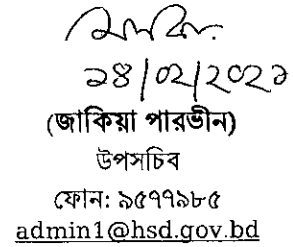 ১৪/০২/২০২১
(জাকিয়া পারভীন)
উপসচিব
ফোন: ৯৫৭৭৯৮৫
admin1@hsd.gov.bd